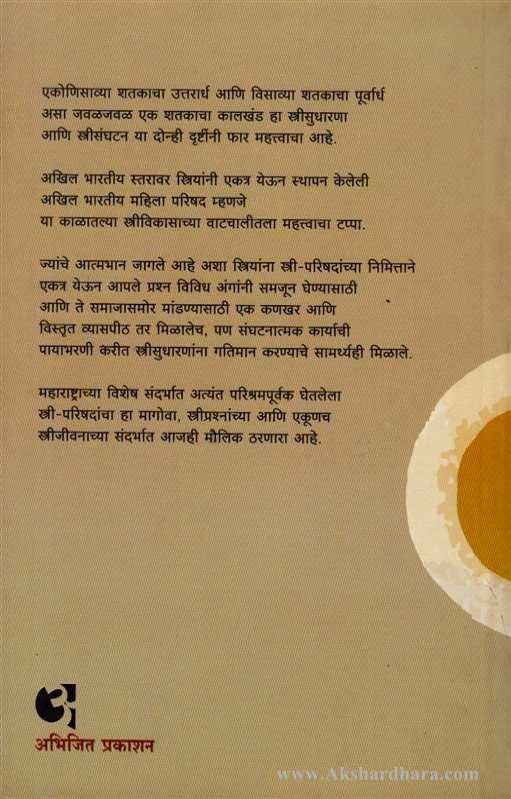 एकोणिसाव्या शतकाचा उत्तरार्ध आणि विसाव्या शतकाचा पूर्वार्ध
असा जवळजवळ एक शतकाचा कालखंड हा स्त्रीसुधारणा
आणि स्त्रीसंघटन या दोन्ही दृष्टींनी फार महत्त्वाचा आहे.
अखिल भारतीय स्तरावर स्त्रियांनी एकत्र येऊन स्थापन केलेली
अखिल भारतीय महिला परिषद म्हणजे
या काळातल्या स्त्रीविकासाच्या वाटचालीतला महत्त्वाचा टप्पा.
ज्यांचे आत्मभान जागले आहे अशा स्त्रियांना स्त्री-परिषदांच्या निमित्ताने
एकत्र येऊन आपले प्रश्न विविध अंगांनी समजून घेण्यासाठी
आणि ते समाजासमोर मांडण्यासाठी एक कणखर आणि
विस्तृत व्यासपीठ तर मिळालेच, पण संघटनात्मक कार्याची
पायाभरणी करीत स्त्रीसुधारणांना गतिमान करण्याचे सामर्थ्यही मिळाले.
महाराष्ट्राच्या विशेष संदर्भात अत्यंत परिश्रमपूर्वक घेतलेला
स्त्री-परिषदांचा हा मागोवा, स्त्रीप्रश्नांच्या आणि एकूणच
स्त्रीजीवनाच्या संदर्भात आजही मौलिक ठरणारा आहे.
अभिजित प्रकाशन
www.Akshardhara.com